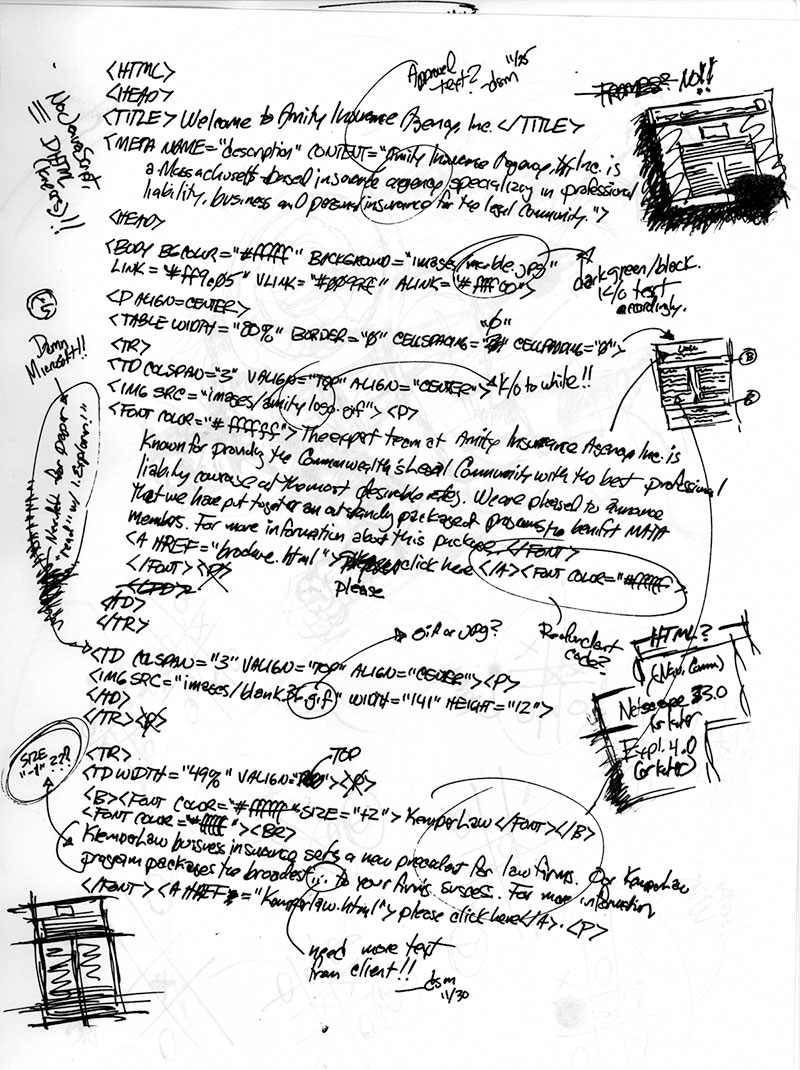 <HTML>
<HEAD>
<TITLE> Welcome to Amity Insurance Agency, Inc. </TITLE>
<META NAME="description" CONTENT="Amity Insurance Agency, Inc. is
a Massachusetts-based insurance agency specializing in professional
liability, business and personal insurance for the legal community.">
<HEAD>
Approval text? dsm 11/25
FRAMES? NO!!
No JavaScript,
DHTML
<BODY BGCOLOR="#fffff" BACKGROUND="images/marble.jpg"
LINK="#ff9.05" VLINK="#009fff" ALINK="#fff00">
dark green/black.
K/o text
accordingly.
<P ALIGN=CENTER>
<TABLE WIDTH="80%" BORDER="0" CELLSPACING="0" CELLPADDING="0">
<TR>
<TD COLSPAN="3" VALIGN="TOP" ALIGN="CENTER"> K/o to white!!
<IMG SRC="images/amity logo.gif"><P>
Damn
Microsoft!!
<FONT COLOR="#ffffff"> The expert team at Amity Insurance Agency Inc. is
known for providing the Commonwealth's Legal Community with the best professional
liability coverage at the most desirable rates. We are pleased to announce
that we have put together an outstanding package of programs to benefit
members. For more information about this package </FONT>
<A HREF="brochure.html"> click here </A><FONT COLOR="#ffffff">
please
</FONT><P>
</TD>
</TR>
Redundant
code?
gif or jpg?
<TD COLSPAN="3" VALIGN="TOP" ALIGN="CENTER"><P>
<IMG SRC="images/blank2.gif" WIDTH="141" HEIGHT="12">
</TD>
</TR><P>
HTML?
(Navi. Comm)
Netscape 3.0
or later
Expl. 4.0
(or later)
SIZE
"-1" ???
<TR>
TOP
<TD WIDTH="49%" VALIGN="><P>
<B><FONT COLOR="#ffffff" SIZE="+2"> KemperLaw </FONT></B>
<FONT COLOR="#ffffff"><BR>
KemperLaw business insurance sets a new precedent for law firms. Our KemperLaw
program packages the broadest ... to your firm's success. For more information
</FONT><A HREF="Kemperlaw.html"> please click here</A>.<P>
need more text
from client!!
dsm
11/30